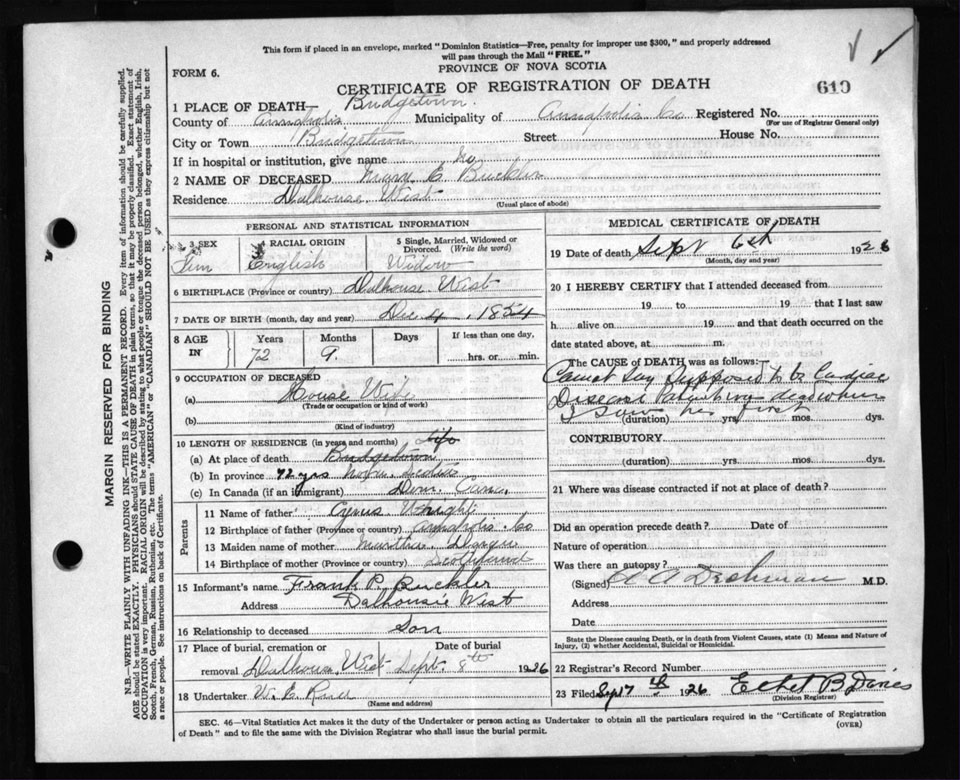 This form if placed in an envelope, marked "Dominion Statistics—Free, penalty for improper use $300," and properly addressed
will pass through the Mail "FREE."
FORM 6.
PROVINCE OF NOVA SCOTIA
CERTIFICATE OF REGISTRATION OF DEATH
610
1 PLACE OF DEATH— Bridgetown.
County of Annapolis Municipality of Annapolis Co Registered No.
(For use of Registrar General only)
City or Town Bridgetown Street House No.
If in hospital or institution, give name no
2 NAME OF DECEASED Mary E Buckler
Residence Dalhousie West
(Usual place of abode)
PERSONAL AND STATISTICAL INFORMATION
3 SEX 4 RACIAL ORIGIN 5 Single, Married, Widowed or Divorced. (Write the word)
Fem English Widow
6 BIRTHPLACE (Province or country) Dalhousie West
7 DATE OF BIRTH (month, day and year) Dec 4, 1854
8 AGE IN Years Months Days If less than one day,
72 9. hrs. or min.
9 OCCUPATION OF DECEASED
(a) House Wife
(Trade or occupation or kind of work)
(b)
(Kind of industry)
10 LENGTH OF RESIDENCE (in years and months) life
(a) At place of death Bridgetown
(b) In province 72 yrs Nova Scotia
(c) In Canada (if an immigrant) Dom. Can.
Parents
11 Name of father Cyrus Wright
12 Birthplace of father (Province or country) Annapolis Co
13 Maiden name of mother
14 Birthplace of mother (Province or country) Scotland
15 Informant's name Frank P. Buckler
Address Dalhousie West
16 Relationship to deceased Son
17 Place of burial, cremation or Date of burial
removal Dalhousie West Sept. 8th 1926
18 Undertaker W. E. Reed
(Name and address)
MEDICAL CERTIFICATE OF DEATH
19 Date of death Sept 6th 1926
(Month, day and year)
20 I HEREBY CERTIFY that I attended deceased from
19 to 19 that I last saw
h alive on 19 and that death occurred on the date stated above, at m.
The CAUSE of DEATH was as follows:—
Cannot say Supposed to be Cardiac
Disease Patient was dead when
I saw her first
(duration) yrs. mos. dys.
CONTRIBUTORY.
(duration) yrs. mos. dys.
21 Where was disease contracted if not at place of death?
Did an operation precede death? Date of
Nature of operation
Was there an autopsy?
(Signed) A A Dechman M.D.
Address
Date
State the Disease causing Death, or in death from Violent Causes, state (1) Means and Nature of
Injury, (2) whether Accidental, Suicidal or Homicidal.
22 Registrar's Record Number
23 Filed Sep 7th 1926 Ethel B Davies
(Division Registrar)
SEC. 46—Vital Statistics Act makes it the duty of the Undertaker or person acting as Undertaker to obtain all the particulars required in the "Certificate of Registration
of Death" and to file the same with the Division Registrar who shall issue the burial permit. (OVER)
MARGIN RESERVED FOR BINDING
N.B.—WRITE PLAINLY WITH UNFADING INK—THIS IS A PERMANENT RECORD. Every item of information should be carefully supplied.
AGE should be stated EXACTLY. PHYSICIANS should STATE CAUSE OF DEATH in plain terms, so that it may be properly classified. Exact statement of
OCCUPATION is very important. RACIAL ORIGIN will be described by stating to what people or tongue the deceased person belonged, whether English, Irish,
Scotch, French, German, Russian, Ruthenian, etc. The terms "AMERICAN" or "CANADIAN" SHOULD NOT BE USED as they express citizenship but not
a race or people. See instructions on back of Certificate.